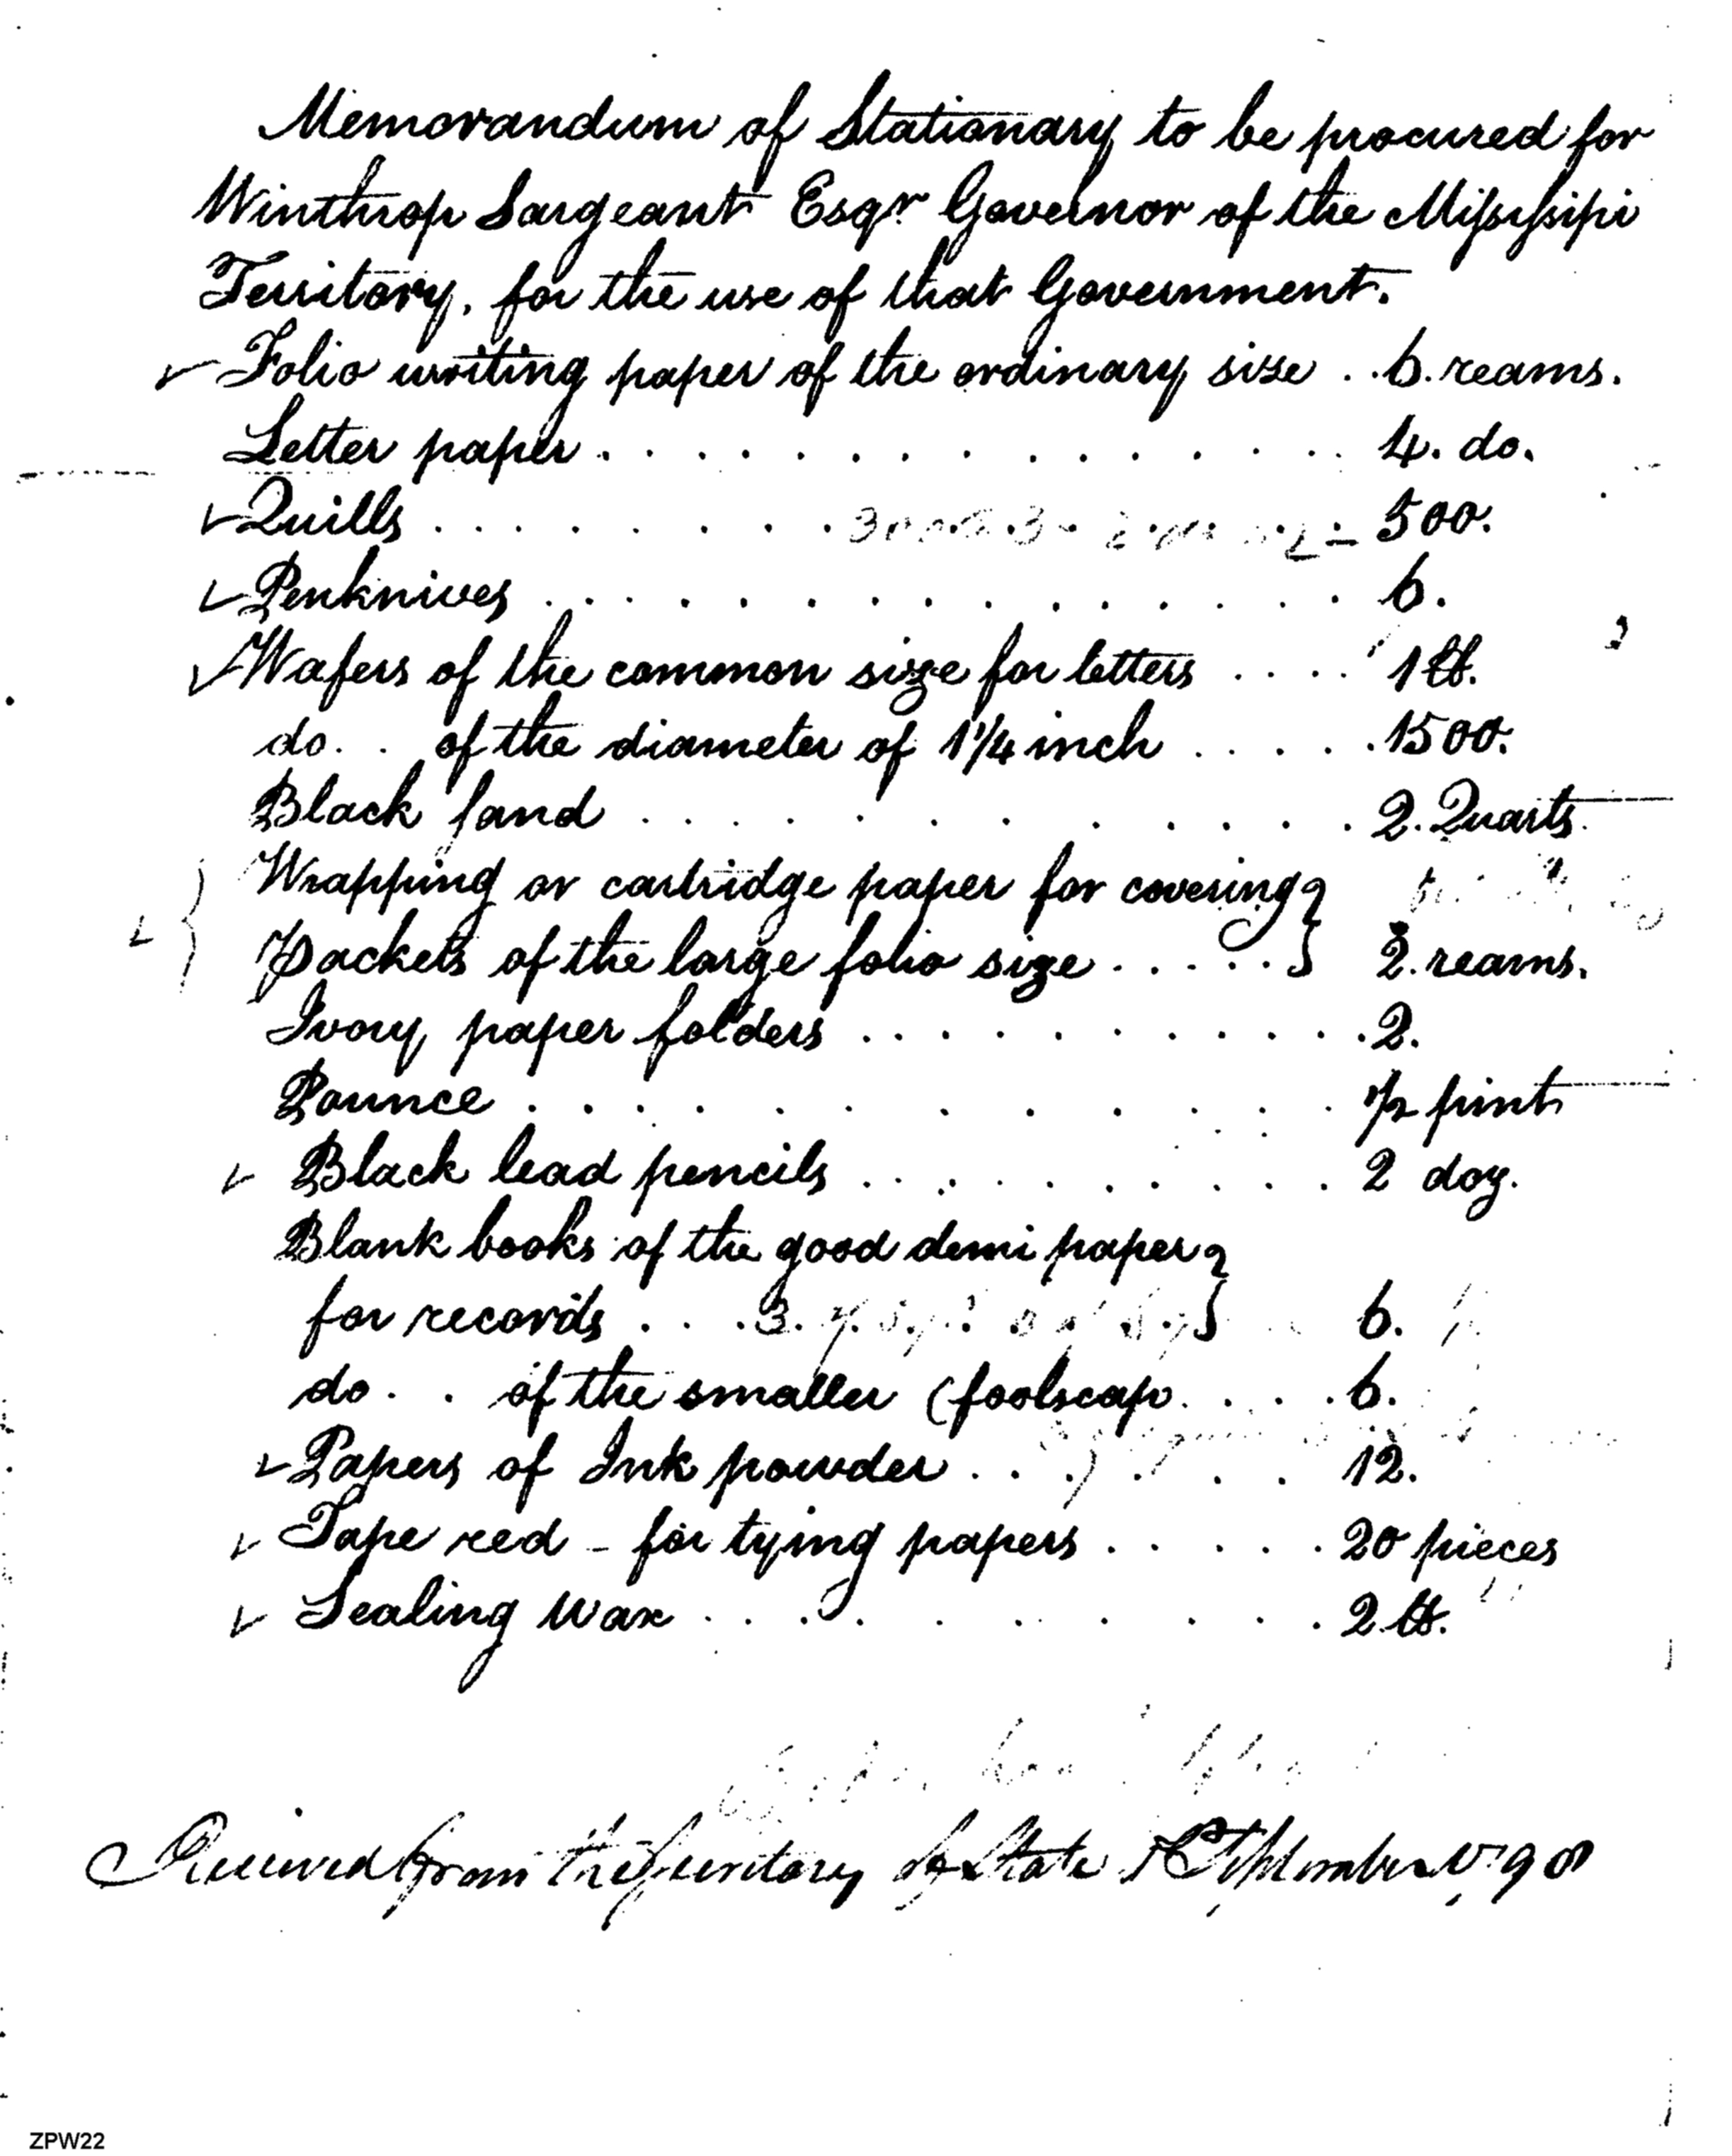 Memorandum of Stationary to be procured for
Winthrop Sargeant Esqr Governor of the Mississipi
Territory, for the use of that Government.
✓ Folio writing paper of the ordinary size . . 6. reams.
Letter paper . . . . . . . . . . . . . . 4. do.
✓ Quills . . . . . . . . . . . . . . 500.
✓ Penknives . . . . . . . . . . . . . . 6.
✓ Wafers of the common size for letters . . . . 1 lb.
do. . of the diameter of 1 1/4 inch . . . . . 1500.
Black sand . . . . . . . . . . . 2. Quarts
Wrapping or cartridge paper for covering }
✓ { Packets of the large folio size . . . . . } 2. reams.
Ivory paper folders . . . . . . . . . . . 2.
Pounce . . . . . . . . . . . 1/2 pint
✓ Black lead pencils . . . . . . . . . . 2 doz.
Blank books of the good demi paper }
for records . . . 3. } 6.
do . . of the smaller (foolscap . . . . 6.
✓ Papers of Ink powder . . . . . . . 12.
✓ Tape red - for tying papers . . . . . 20 pieces
✓ Sealing Wax . . . . . . . . . . 2 lb.
Received from the Secretary of State September 1798
ZPW22